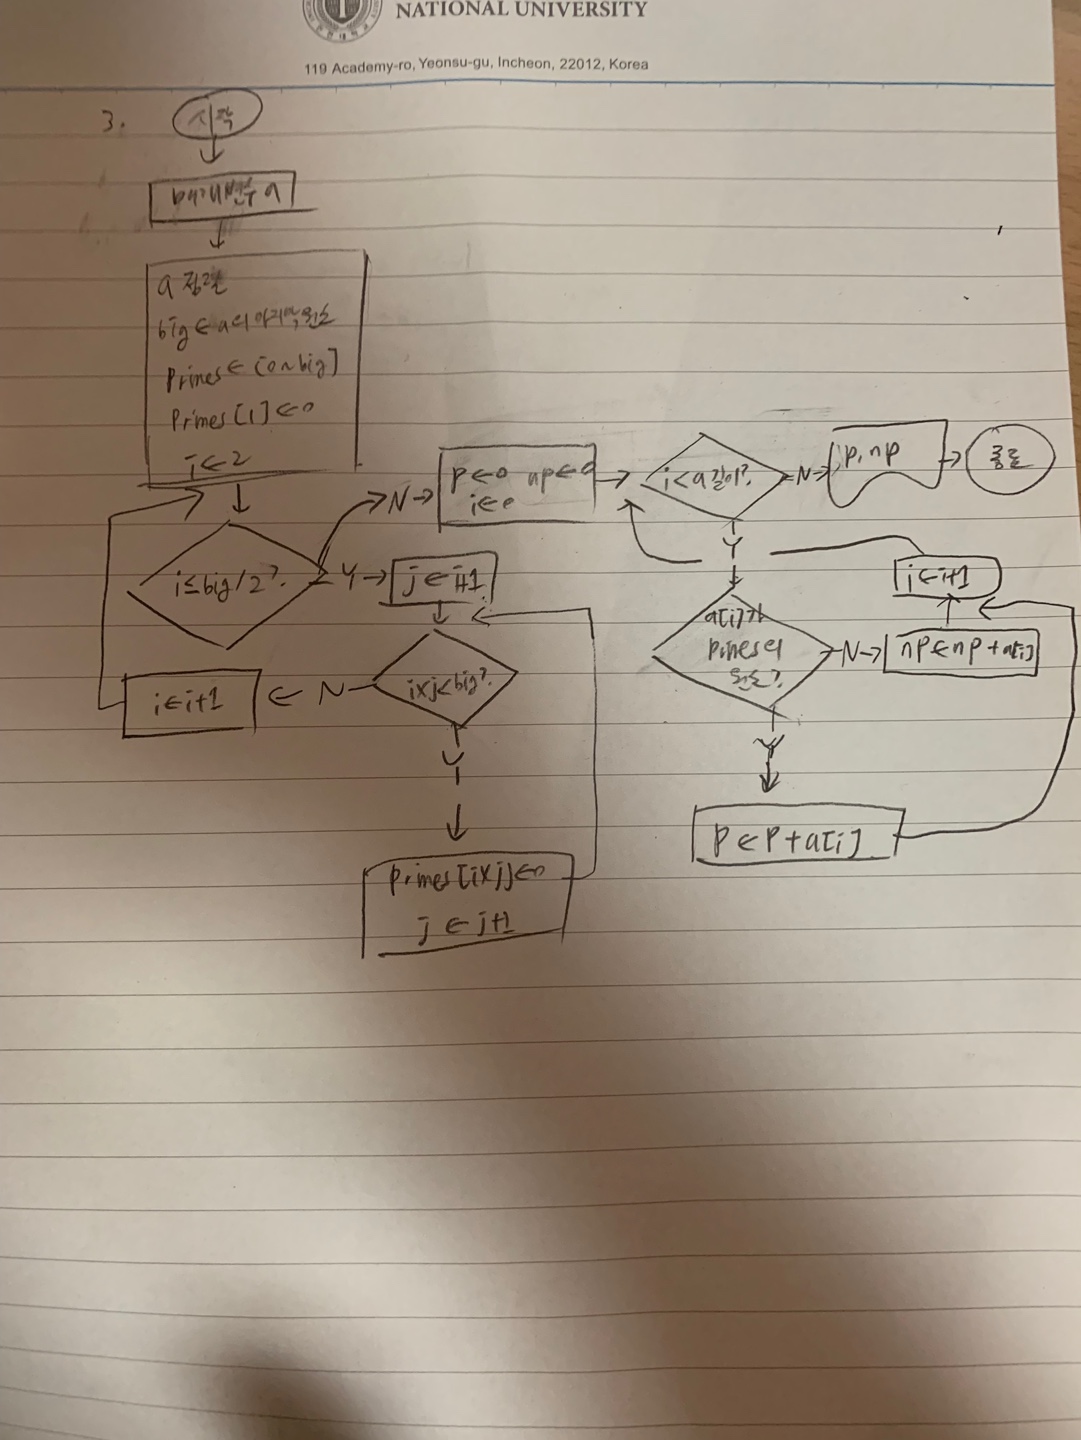 NATIONAL UNIVERSITY
119 Academy-ro, Yeonsu-gu, Incheon, 22012, Korea
3.
시작
매개변수 a
a 정렬
big ← a의 마지막 원소
Primes ← [0~big]
Primes[1] ← 0
i ← 2
i ≤ big/2?
Y
N
j ← i+1
i×j<big?
N
i ← i+1
Y
primes[i×j] ← 0
j ← j+1
p ← 0 np ← 0
i ← 0
i < a 길이?
N
p, np
종료
Y
a[i]가
primes의
원소?
N
np ← np + a[i]
i ← i+1
Y
P ← P + a[i]